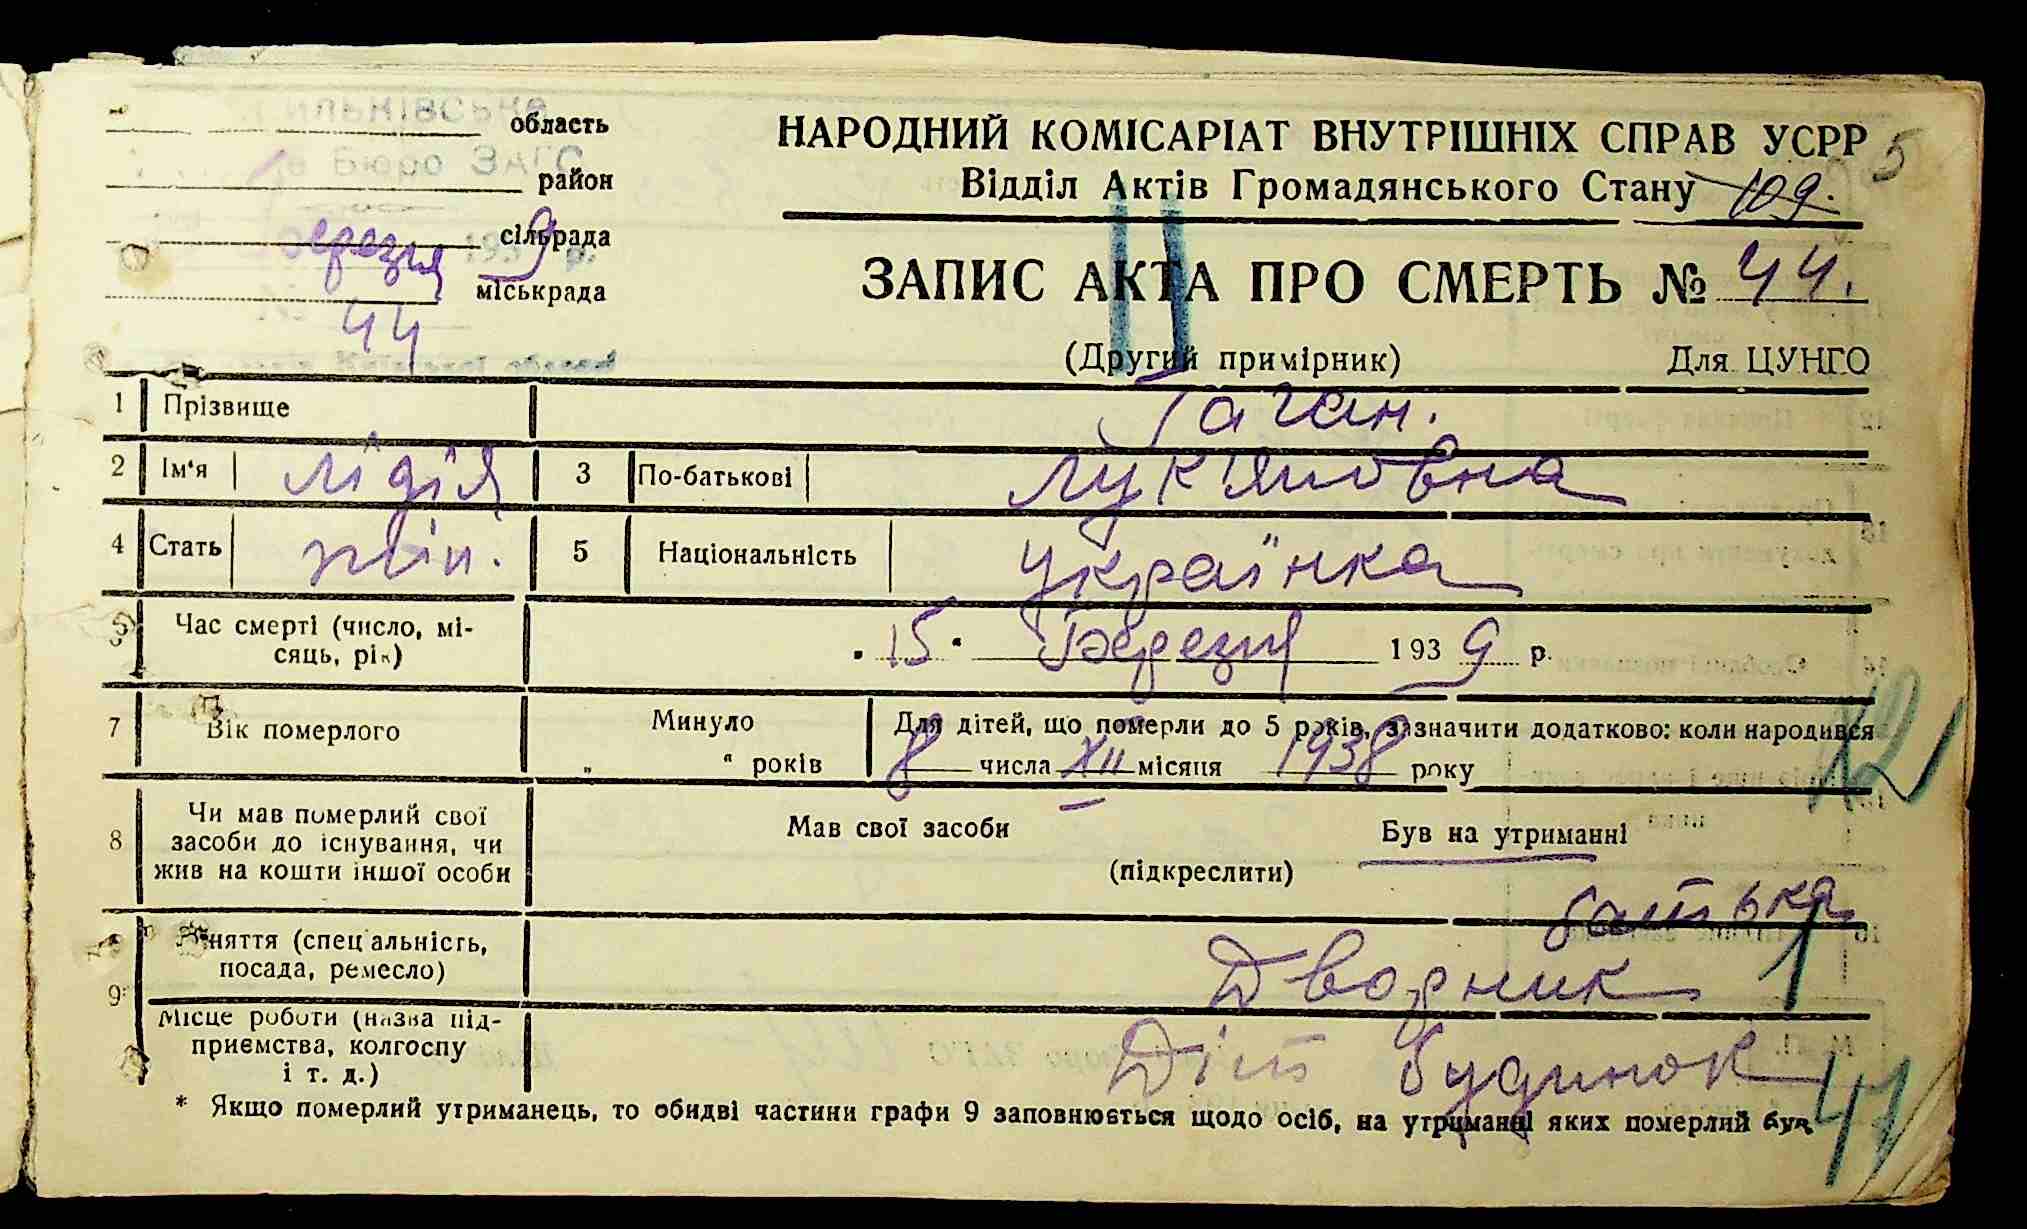 ильнівсь
область
Бюро ЗАГС
район
сільрада
березня 1939 р.
міськрада
44
НАРОДНИЙ КОМІСАРІАТ ВНУТРІШНІХ СПРАВ УСРР 5
Відділ Актів Громадянського Стану 109.
ЗАПИС АКТА ПРО СМЕРТЬ № 44.
(Другий примірник) Для ЦУНГО
1 Прізвище Гаган.
2 Ім'я Лідія 3 По-батькові Лук'яновна
4 Стать жін. 5 Національність українка
Час смерті (число, мі-
сяць, рік) 15 Березня 1939 р.
7 Вік померлого Минуло
" " років
Для дітей, що померли до 5 років, зазначити додатково: коли народився
8 числа XII місяця 1938 року
121
8 Чи мав померлий свої
засоби до існування, чи
жив на кошти іншої особи
Мав свої засоби Був на утриманні
(підкреслити)
батька
9 Заняття (спеціальність,
посада, ремесло) Дворник 1
Місце роботи (назва під-
приємства, колгоспу
і т. д.) Діт будинок
41
* Якщо померлий утриманець, то обидві частини графи 9 заповнюється щодо осіб, на утриманні яких померлий був